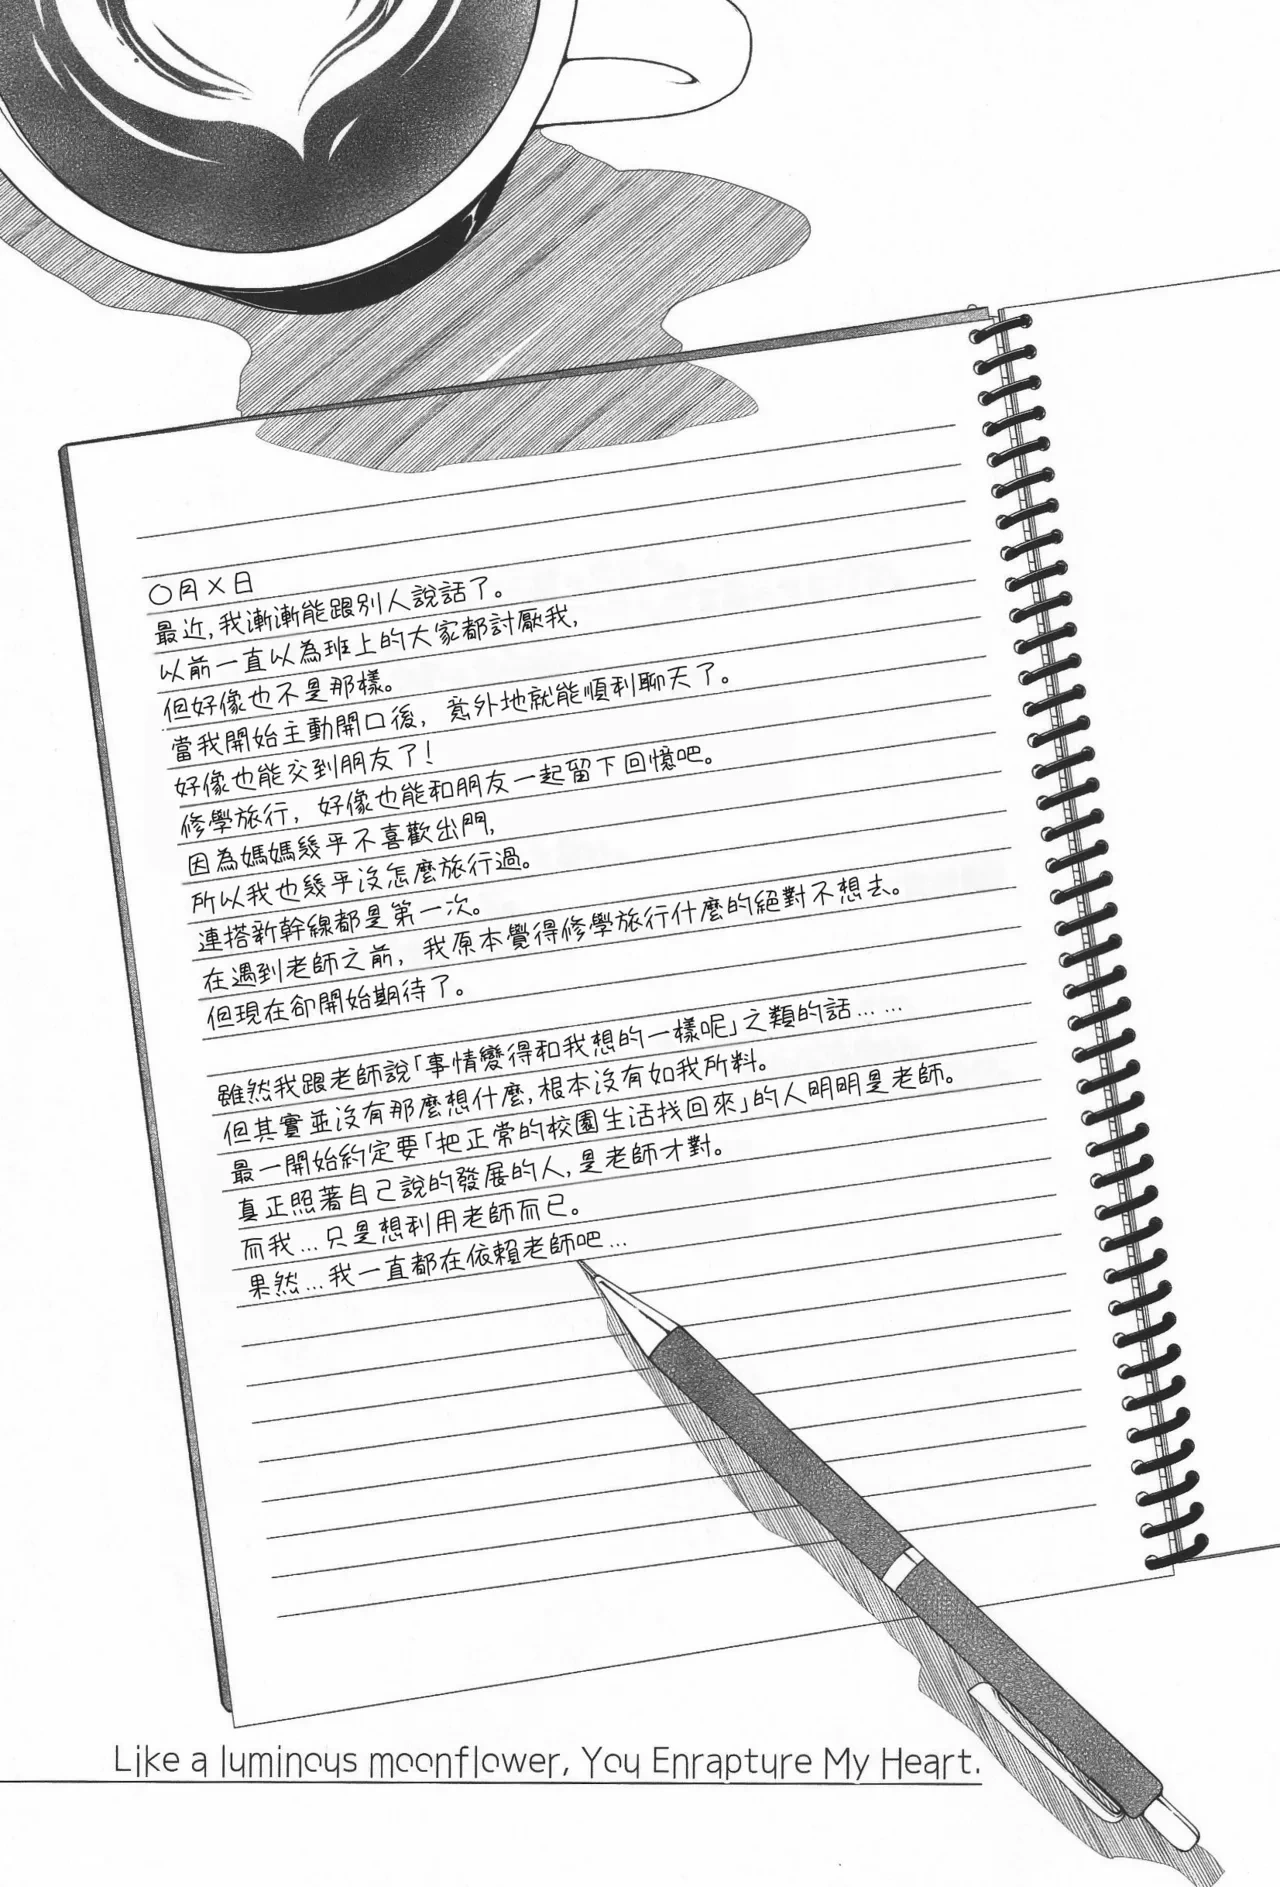 〇月×日
最近,我漸漸能跟別人說話了。
以前一直以為班上的大家都討厭我,
但好像也不是那樣。
當我開始主動開口後，意外地就能順利聊天了。
好像也能交到朋友了!
修學旅行，好像也能和朋友一起留下回憶吧。
因為媽媽幾乎不喜歡出門,
所以我也幾乎沒怎麼旅行過。
連搭新幹線都是第一次。
在遇到老師之前，我原本覺得修學旅行什麼的絕對不想去。
但現在卻開始期待了。
雖然我跟老師說「事情變得和我想的一樣呢」之類的話……
但其實並沒有那麼想什麼,根本沒有如我所料。
最一開始約定要「把正常的校園生活找回來」的人明明是老師。
真正照著自己說的發展的人,是老師才對。
而我…只是想利用老師而已。
果然…我一直都在依賴老師吧…
Like a luminous moonflower, You Enrapture My Heart.